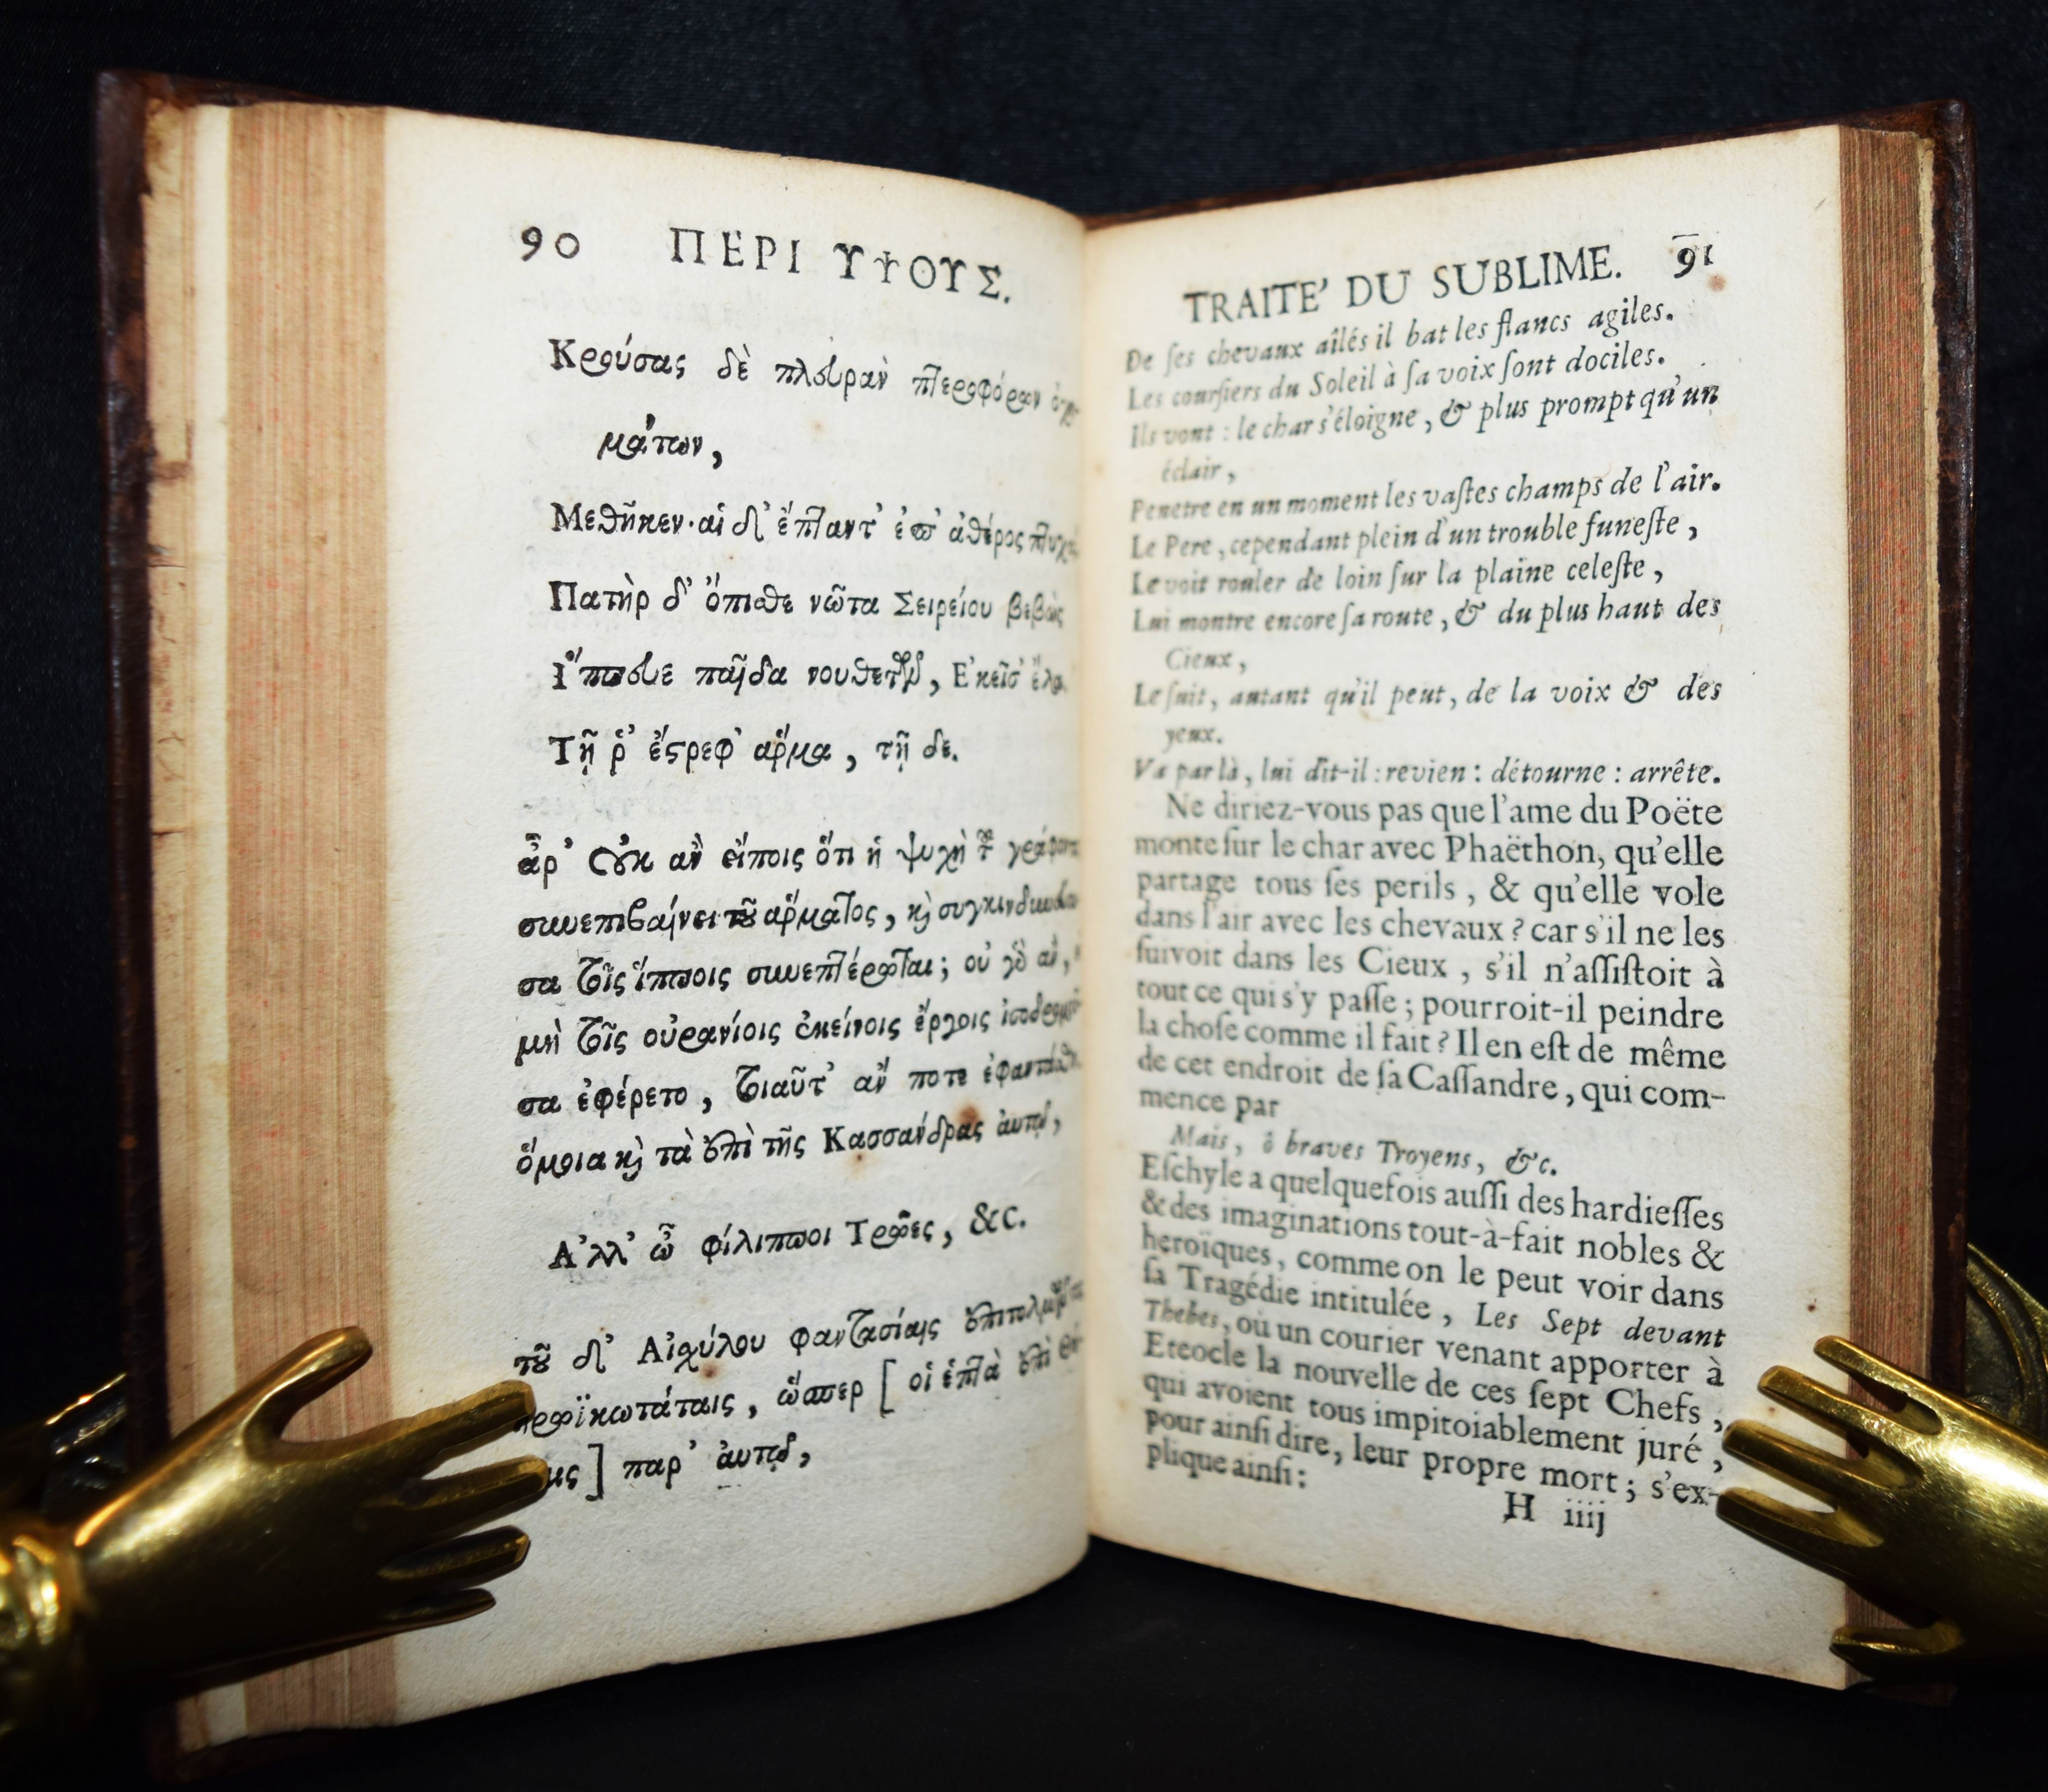 90 ΠΕΡΙ ΥΨΟΥΣ.
Κρούσας δὲ πλευρὰν πτεροφόρων
μάτων,
Μεθῆκεν· αἱ δ' ἔπταντ' ἐπ' αἰθέρος
Πατὴρ δ' ὄπισθε νῶτα Σειρείου βεβὼς
Ἵππευε παῖδα νουθετῶν, Ἐκεῖσ'
Τῇ ῥ' ἔστρεφ' ἅρμα, τῇ δε.
ἆρ' οὐκ ἂν εἴποις ὅτι ἡ ψυχὴ τοῦ
συνεπιβαίνει τοῦ ἅρματος, καὶ
σα τοῖς ἵπποις συνεπτέρωται; οὐ γὸ ἂν,
μὴ τοῖς οὐρανίοις ἐκείνοις ἔργοις
σα ἐφέρετο, τοιαῦτ' ἄν ποτε
ὅμοια καὶ τὰ ἐπὶ τῆς Κασσάνδρας αὐτῷ,
Ἀλλ' ὦ φίλιπποι Τρῶες, &c.
τοῦ δ' Αἰσχύλου φαντασίαις
ἡρωϊκωτάταις, ὥσπερ [οἱ ἑπτὰ ἐπὶ
] παρ' αὐτῷ,
TRAITE' DU SUBLIME. 91
De ſes chevaux aîlés il bat les flancs agiles.
Les courſiers du Soleil à ſa voix ſont dociles.
Ils vont : le char s'éloigne, & plus prompt qu'un
éclair,
Penetre en un moment les vaſtes champs de l'air.
Le Pere, cependant plein d'un trouble funeſte,
Le voit rouler de loin ſur la plaine celeſte,
Lui montre encore ſa route, & du plus haut des
Cieux,
Le ſuit, autant qu'il peut, de la voix & des
yeux.
Va par là, lui dit-il : revien : détourne : arrête.
Ne diriez-vous pas que l'ame du Poëte
monte ſur le char avec Phaëthon, qu'elle
partage tous ſes perils, & qu'elle vole
dans l'air avec les chevaux ? car s'il ne les
ſuivoit dans les Cieux, s'il n'aſſiſtoit à
tout ce qui s'y paſſe ; pourroit-il peindre
la choſe comme il fait ? Il en eſt de même
de cet endroit de ſa Caſſandre, qui com-
mence par
Mais, ô braves Troyens, &c.
Eſchyle a quelquefois auſſi des hardieſſes
& des imaginations tout-à-fait nobles &
heroïques, comme on le peut voir dans
ſa Tragédie intitulée, Les Sept devant
Thebes, où un courier venant apporter à
Eteocle la nouvelle de ces ſept Chefs,
qui avoient tous impitoiablement juré,
pour ainſi dire, leur propre mort ; s'ex-
plique ainſi :
H iiij